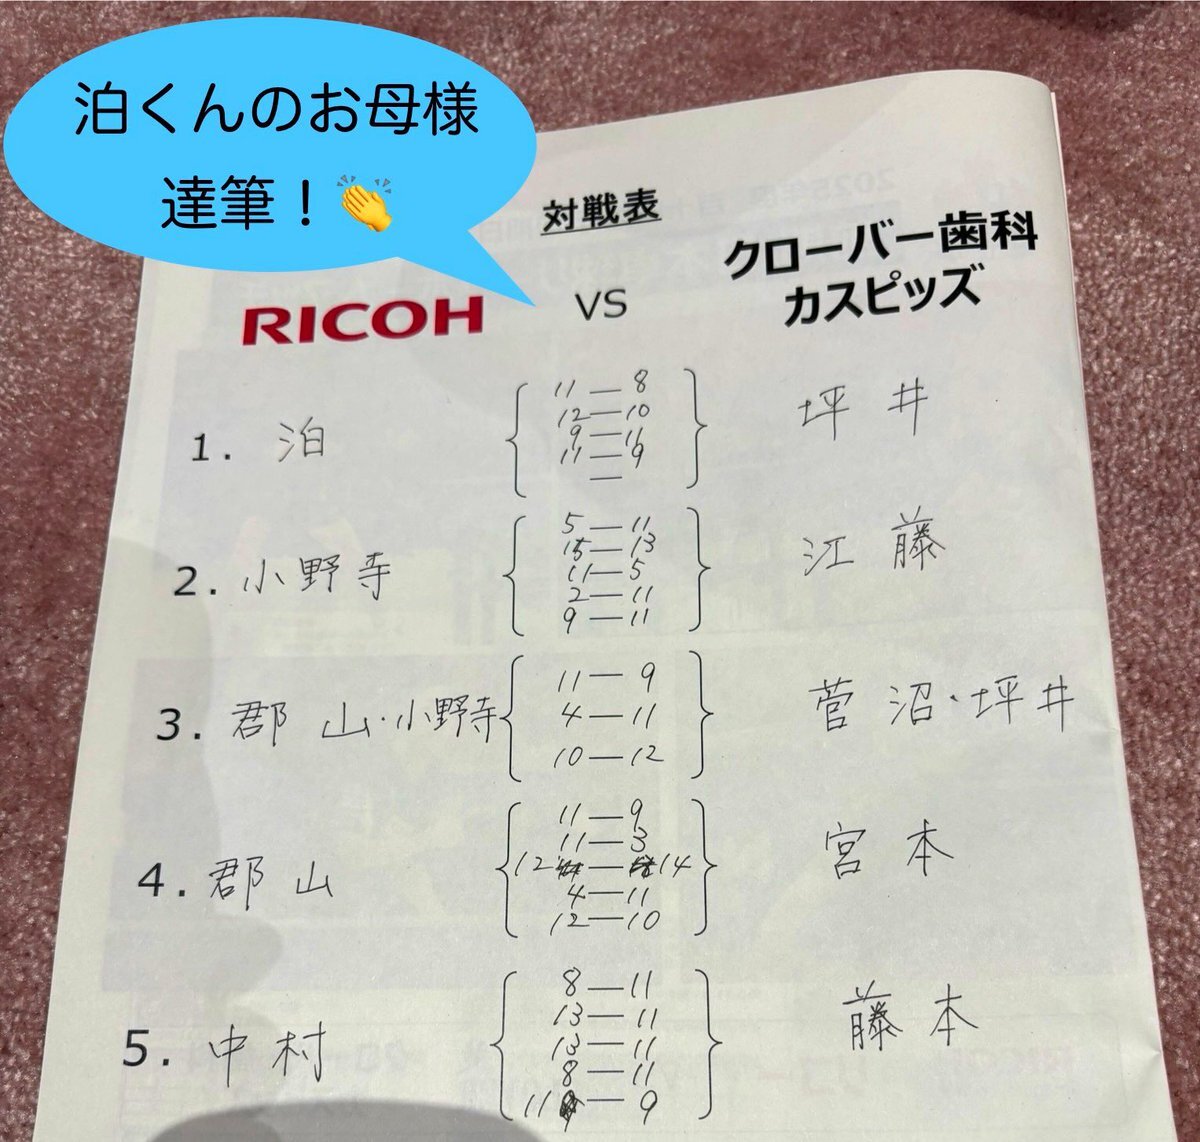 泊くんのお母様
達筆！👏
対戦表
RICOH VS クローバー歯科
カスピッズ
1. 泊 坪井
11 — 8
12 — 10
9 — 11
11 — 9
—
2. 小野寺 江藤
5 — 11
15 — 13
11 — 5
2 — 11
9 — 11
3. 郡山・小野寺 菅沼・坪井
11 — 9
4 — 11
10 — 12
4. 郡山 宮本
11 — 9
11 — 3
12 — 14
4 — 11
12 — 10
5. 中村 藤本
8 — 11
13 — 11
13 — 11
8 — 11
11 — 9